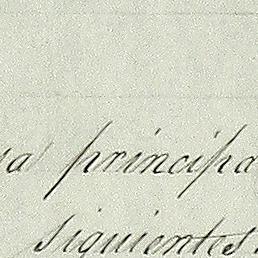 va principa
siguientes